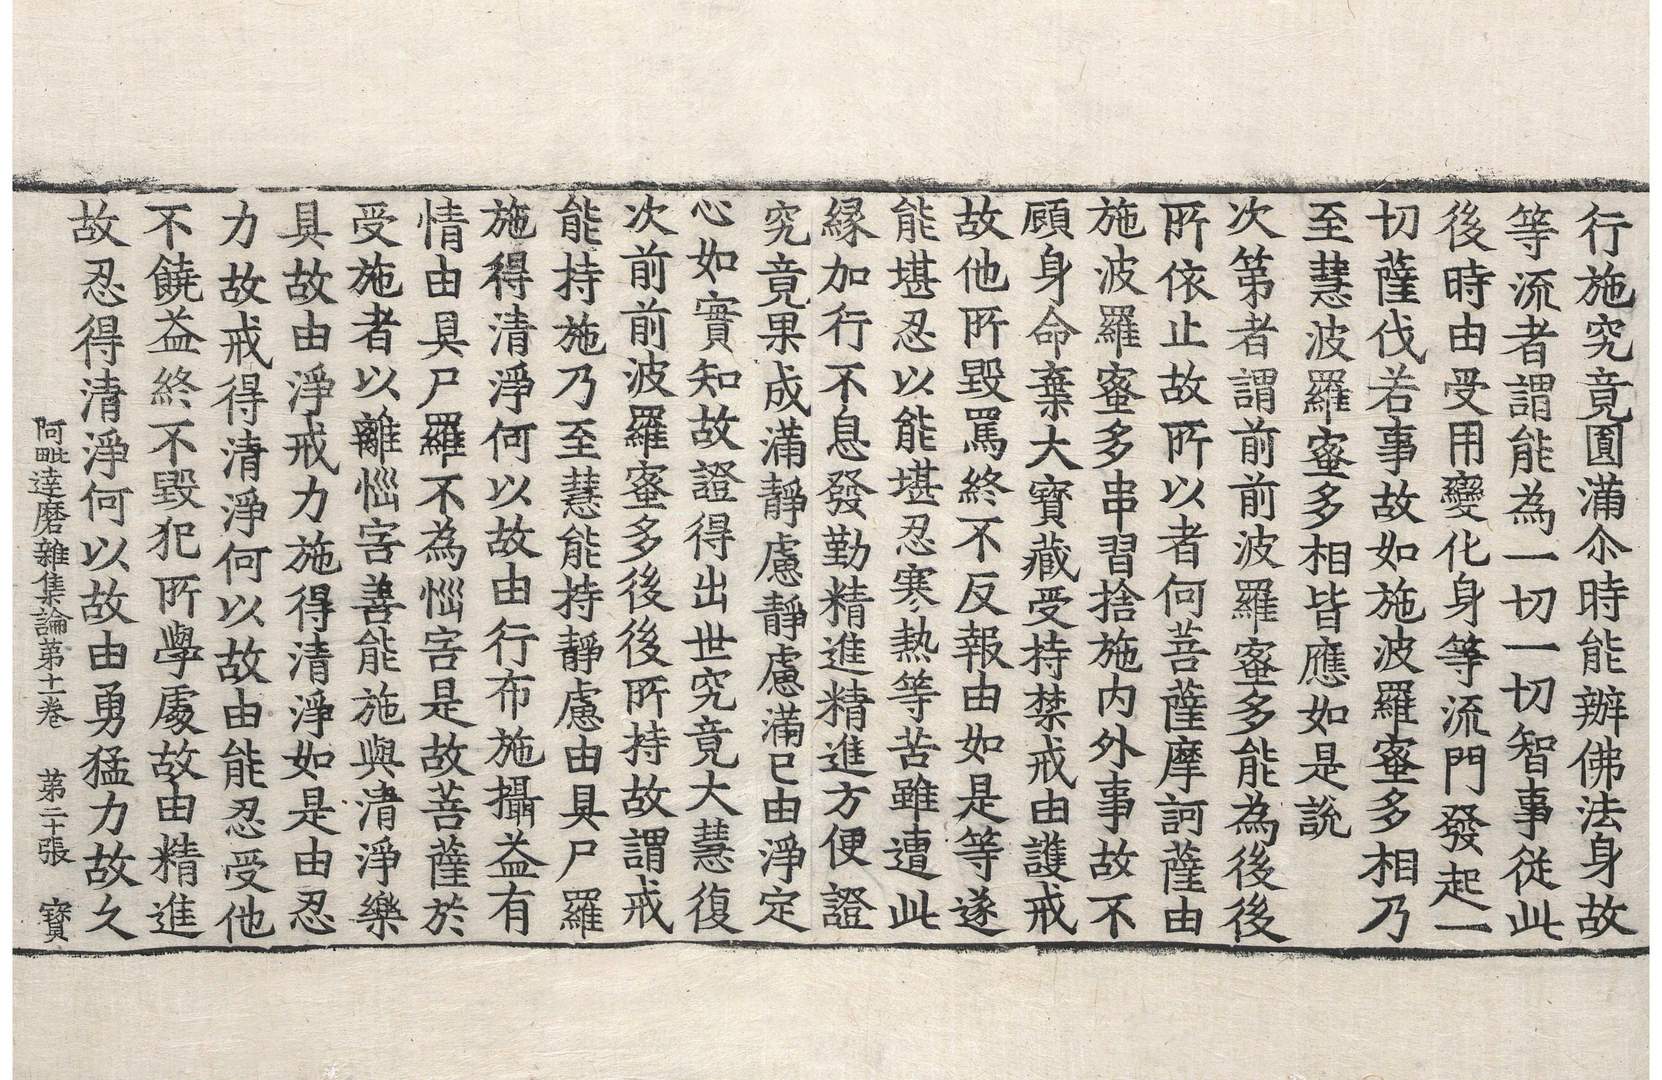 行施究竟圎滿尒時能辦佛法身故
等流者謂能為一切一切智事従此
後時由受用變化身等流門發起一
切薩伐若事故如施波羅蜜多相乃
至慧波羅蜜多相皆應如是說
次第者謂前前波羅蜜多能為後後
所依止故所以者何菩薩摩訶薩由
施波羅蜜多串習捨施內外事故不
顧身命棄大寶藏受持禁戒由護戒
故他所毀罵終不反報由如是等遂
能堪忍以能堪忍寒熱等苦雖遭此
緣加行不息發勤精進精進方便證
究竟果成滿靜慮靜慮滿已由淨定
心如實知故證得出世究竟大慧復
次前前波羅蜜多後後所持故謂戒
能持施乃至慧能持靜慮由具尸羅
施得清淨何以故由行布施攝益有
情由具尸羅不為惱害是故菩薩於
受施者以離惱害善能施與清淨樂
具故由淨戒力施得清淨如是由忍
力故戒得清淨何以故由能忍受他
不饒益終不毀犯所學處故由精進
故忍得清淨何以故由勇猛力故久
阿毗達磨雜集論第十一卷　第二十張　寳